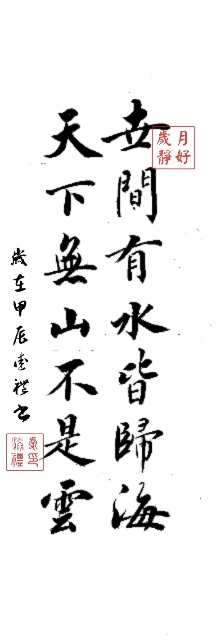 世間有水皆歸海
天下無山不是雲
歲在甲辰
月好
歲靜